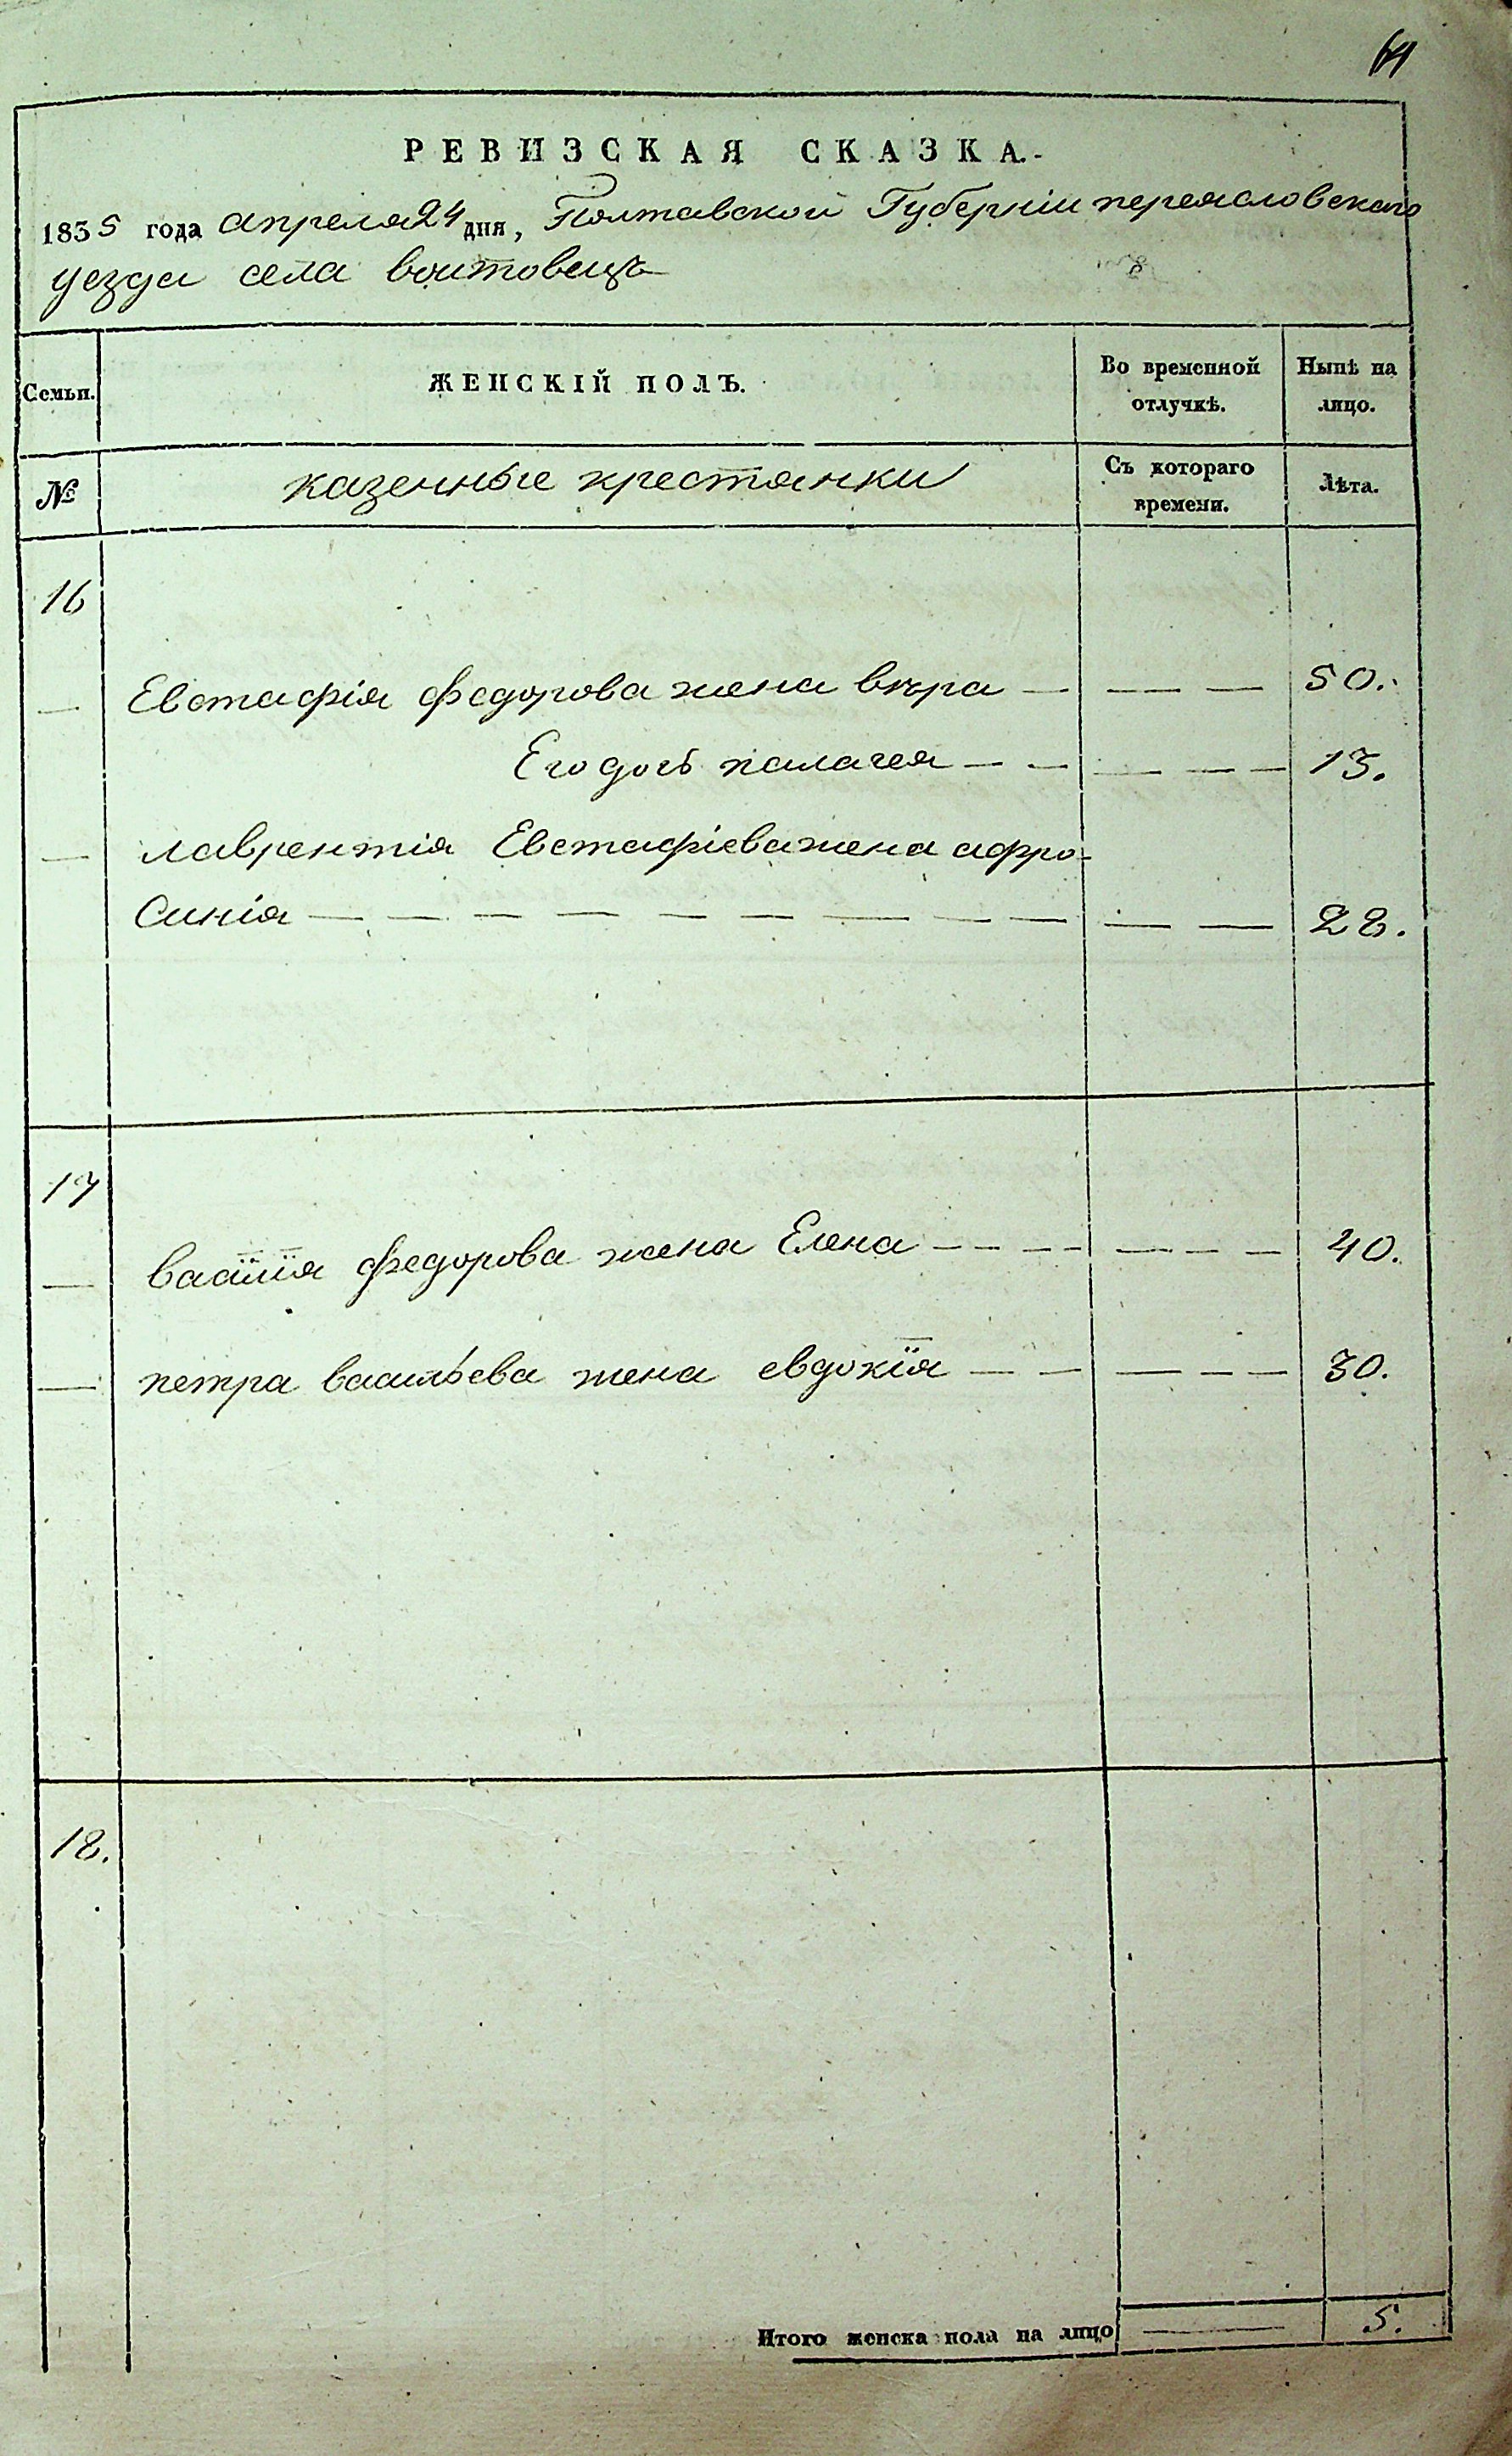 64
РЕВИЗСКАЯ СКАЗКА.
1835 года апреля 24 дня, Полтавской Губерніи переясловскаго
уезда села воитовецъ
Семьи.
ЖЕНСКІЙ ПОЛЪ.
Во временной отлучкѣ.
Нынѣ на лицо.
№
казенные крестянки
Съ котораго времени.
Лѣта.
16
— Евстафія федорова жена вѣра — — — — 50.
Его дочь палагея — — — — — 13.
— лаврентія Евстафіева жена афро-
синія — — — — — — — — — — — 28.
17
— василія федорова жена Елена — — — — — — — 40.
— петра васильева жена евдокія — — — — — 30.
18.
Итого женска пола на лицо — 5.